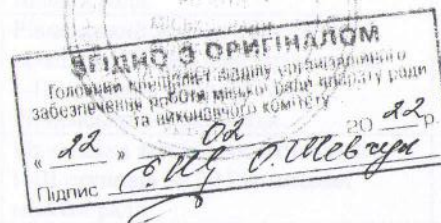 ЗГІДНО З ОРИГІНАЛОМ
Головний спеціаліст відділу організаційного
забезпечення роботи міської ради апарату ради
та виконавчого комітету
« 22 » 02 20 22 р.
Підпис О. Шевчук